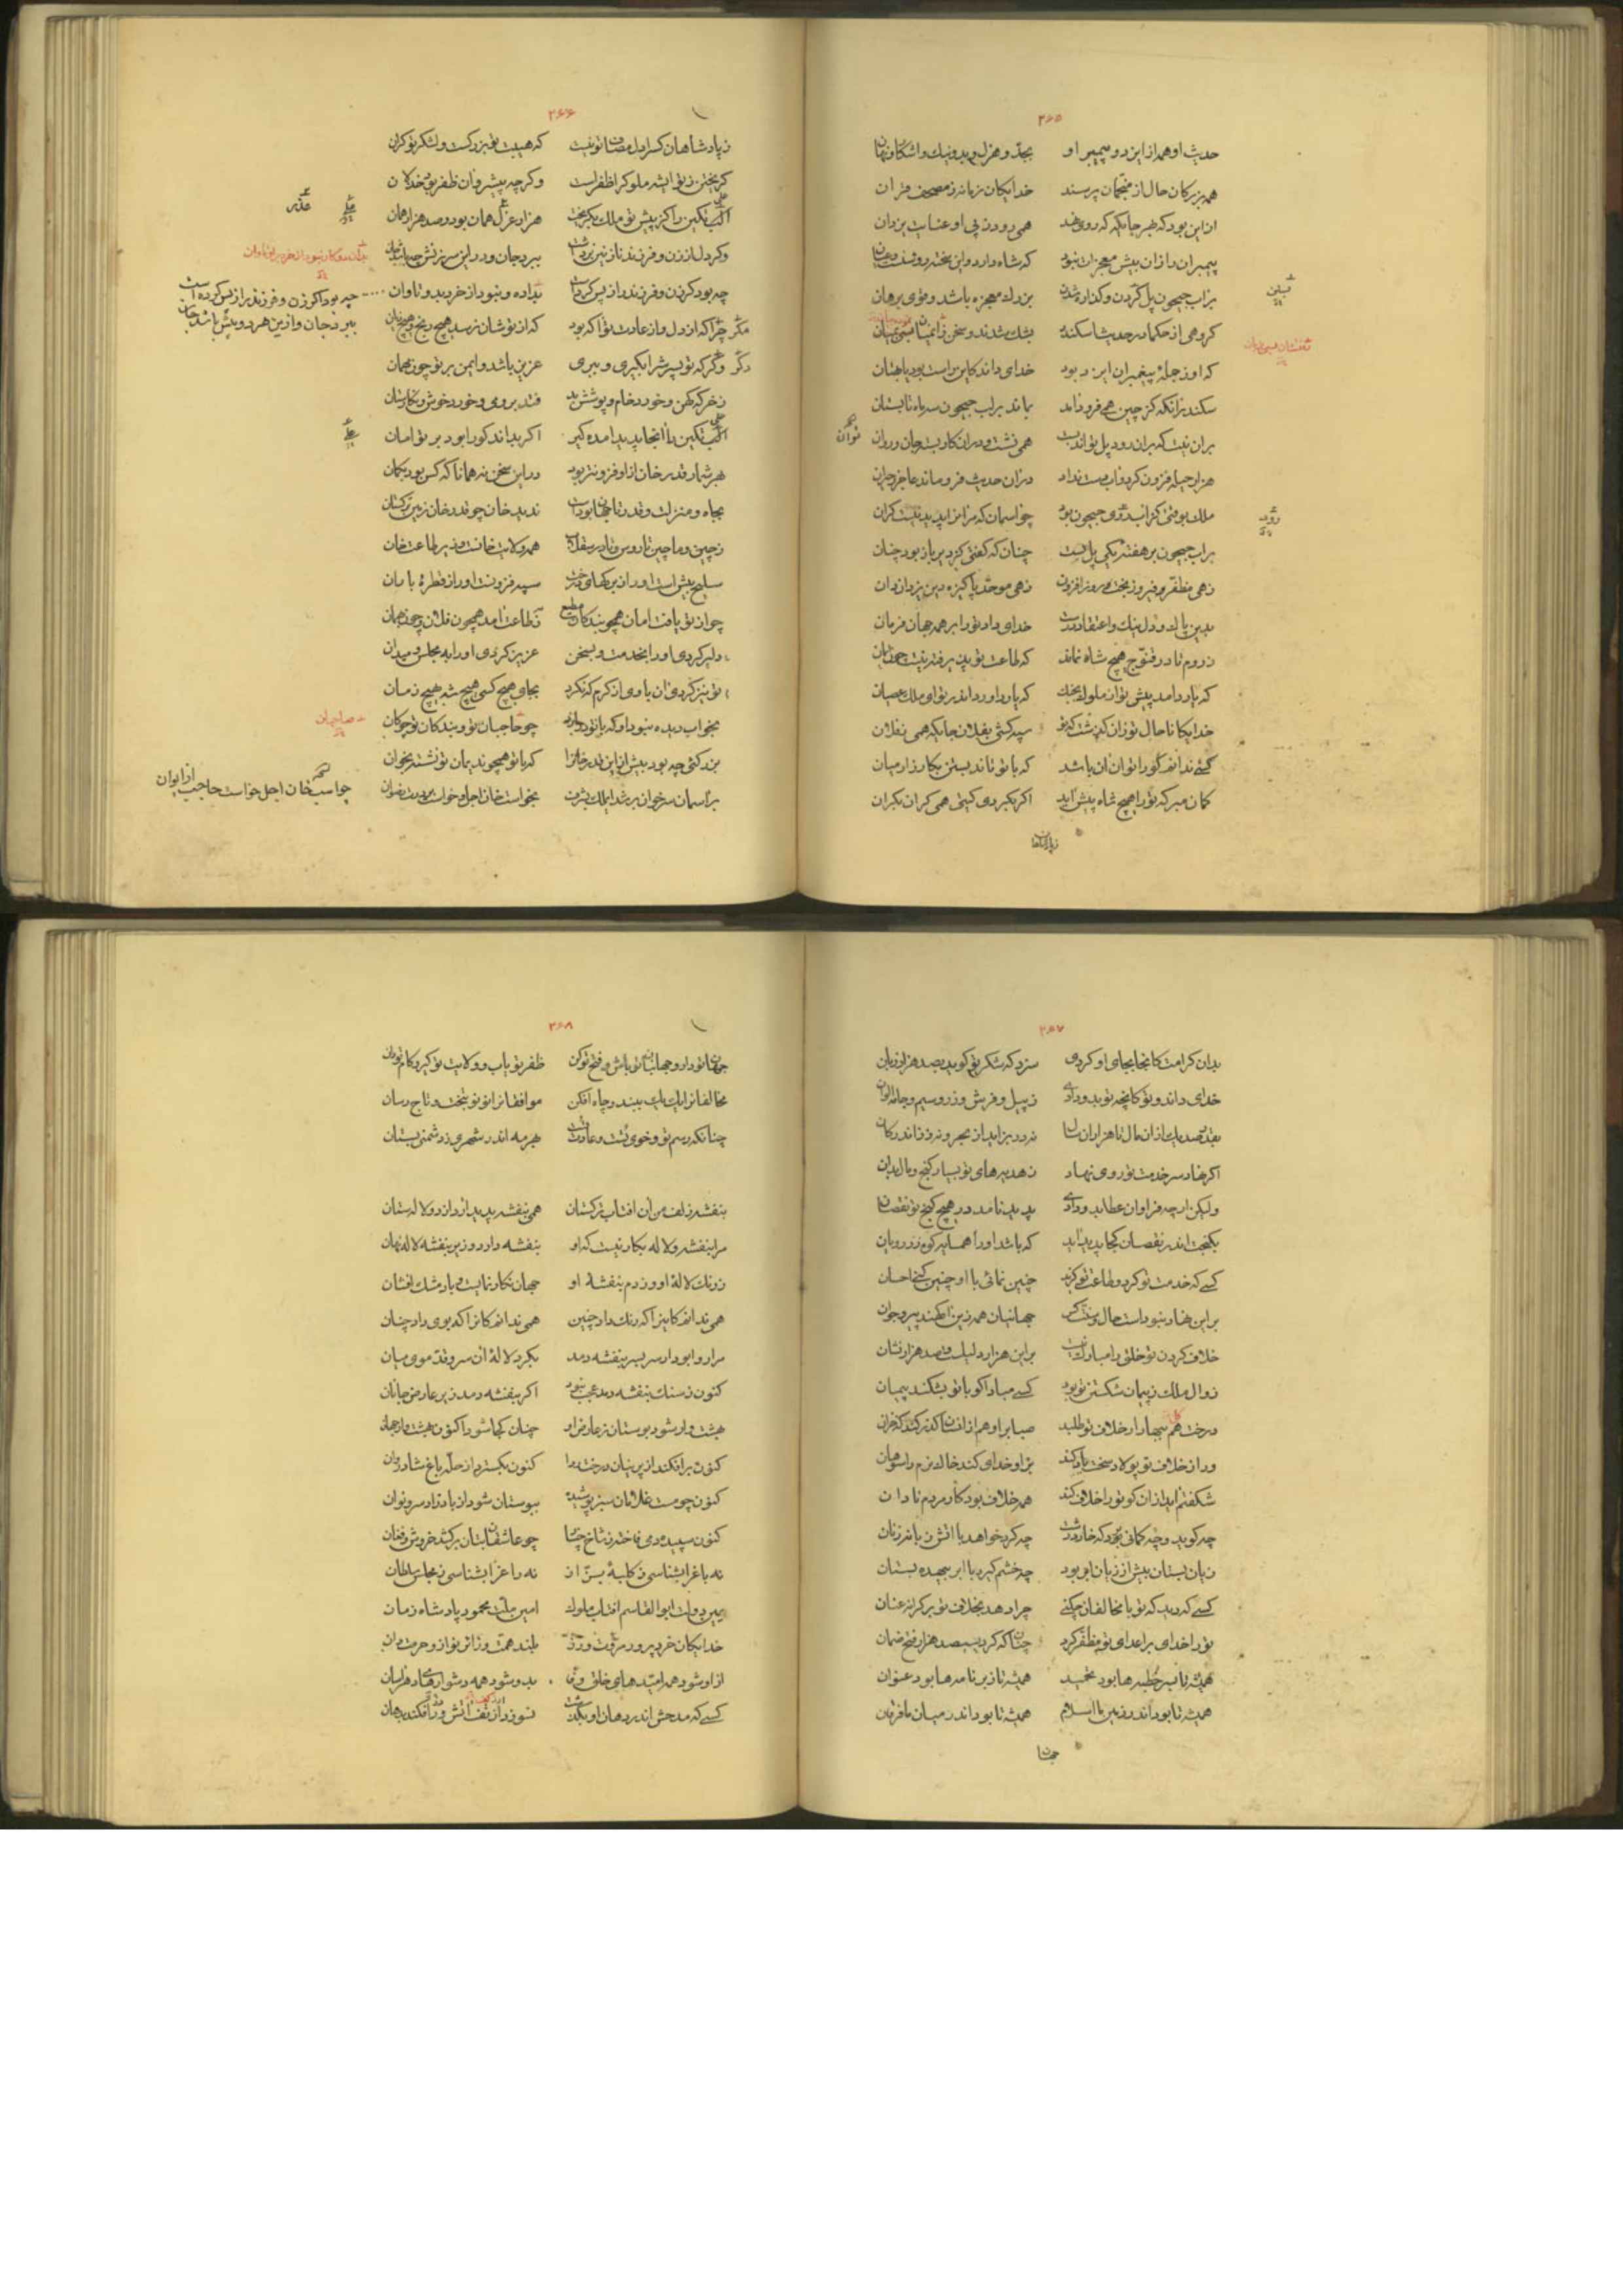 ۳۶۵
حدیث او همه از ایزد و پیمبر او بجدّ و هزل و بد و نیک و اشکار و نهان
همه بزرکان حال از منجّمان پرسند خدایکان زمانه ز مصحف قران
ازین بود که بهر جایکه که روی نهد همی رود ز پی او عنایت یزدان
پیمبران را زان بیش معجزات نبود که شاه دارد واین سخته
بر اب جیحون پل کردن و کذاره شدن بزرک معجزه باشد و قوی برهان
کروهی از حکما در حدیث اسکندر بشک شدند و سخن
که او ز جمله پیغمبران ایزد بود خدای داند کاین راست بود یا بهتان
سکندر انکه کز چین همی فرود امد بماند بر لب جیحون سه ماه تابستان
بران نیت که بران رود پل تواند بست همی نشست و دران کار بست جان و روان
هزار حیله فزون کرد و اب دست نداد دران حدیث فرو ماند عاجز و حیران
ملک بوقتی کز اب روی جیحون بود چو اسمان که مر انرا پدید نیست کران
بر اب جیحون در هفته یکی پل بست چنان که کفتی کز دیر باز بود چنان
زهی مظفّر و فیروز بخت و روز افزون زهی موحّد پاکیزه دین یزدان دان
بدین پاک و دل نیک و اعتقاد درست خدای داد ترا بر همه جهان فرمان
ز روم تا در قنّوج هیچ شاه نماند که طاعت تو نپذیرفت
که یارد امد پیش تو از ملوک بجنک که یارد اورد اندر تو ای ملک عصیان
خدایکانا حال تو زان کذشت که تو سپه کشی بفلان جایکه همی بفلان
کسی ندانم کورا توان ان باشد که با تو تاند بستن بکارزار میان
کمان مبر که ترا هیچ شاه پیش اید اکر بکردی کیتی همی کران بکران
توان
رود
۳۶۶
ز پادشاهان کس را دل مصاف تو نیست که هیبت تو بزرکست و لشکر تو کران
کریختن ز تو ای شه ملوک را ظفرست وکرچه پیشرو ان ظفر بود خذلان
علی تکین را کز پیش تو ملک بکریخت هزار عزل همان بود و صد هزار همان
وکر دل از زن و فرزند نازنین برداشت ببرد جان و درین سرزنش
چه بود کر زن و فرزند را ز پس کرد است بداده و نبود از خرد بدو تاوان
مکر چرا که از دل و از عادت تو اکه بود که از تو شان نرسد هیچ رنج و هیچ زیان
دکر وکر که تو پسرش را بکیری و ببری عزیز باشد و ایمن بر تو چون مهمان
ز خرکه کهن و خورد خام و پوشش بد فتد بروی و خورد خوش و نکارستان
علی تکین را انجا پدید امده کیر اکر بداند کو را بود بر تو امان
بهر شمار قدر خان ازو فزونتر بود درین سخن نه همانا که کس بود بکمان
بجاه و منزلت و قدر تا جهان بودست ندید خان چو قدر خان زمین ترکستان
ز چین و ماچین تا روس و تا در سقلاب همه ولایت خانست و زیر طاعت خان
سلیح بیش است او را ز برکهای درخت سپه فزونست او را ز قطره باران
چو از تو یافت امان همچو بندکان مطیع بطاعت امد همچون فلان و چون بهمان
دلیر کردی او را بخدمت و بسخن عزیز کردی او را به مجلس و میدان
تو نیز کردی ان با وی از کرم که نکرد بجای هیچ کسی هیچ شه بهیچ زمان
بخواب دیده نبود او که با تو یارد زد چو حاجبان تو و بندکان تو چوکان
بزرکتی چه بود بیش ازین قدر خان را که با تو همچو ندیمان تو نشست بخوان
بر اسمان سر خوان برشد ای ملک ز شرف بخواست خان اجل و خواست
علی
عذر
چه بود اکر زن و فرزند را ز پس کرده است
ببرد جان و ازین هر دو بیش باشد جان
علی
صاحبان
چو اسب خان اجل خواست حاجب از ایوان
زپادشاهان
۳۶۷
بدان کرامت کانجا بجای او کردی سزد که شکر تو کوید بصد هزار زبان
خدای داند و تو کانچه تو بدو دادی ز پیل و فرش و زر و سیم و جامه الوان
بقدر صد یک ازان مال تا هزاران سال نه در بزاید از بحر و نه زر اندر کان
اکر نهاد سر خدمت تو روی نهاد ز هدیه های تو بسیار کنج و مال بدان
ولیکن ارچه فراوان عطا بدو دادی پدید نامد در هیچ کنج تو نقصان
بکنجت اندر نقصان کجا پدید اید که باشد او را همسایه کوه زر رویان
کسی که خدمت تو کرد و طاعت تو کزید چنین نمائی با او چنین کنی احسان
برین نهاد نبوداست حال جهانیان همه زین اکهند پیر و جوان
خلاف کردن تو خلق را مبارک نیست برین هزار دلیلست و صد هزار نشان
زوال ملک ز پیمان شکستن تو بود کسی مباد اکو با تو بشکند پیمان
درخت هم ببهار ار خلاف تو طلبد صبا بر او هم ازان سان کذر کند که خزان
ور از خلاف تو پولاد سخت یاد کند بر او خدای کند خاک نرم را سوهان
شکفتم اید ازان کو ترا خلاف کند همه خلاف بود کار مردم نادان
چه کوید و چه کمانی برد که خار درشت چه کرد خواهد با اتش زبانه زنان
زیان بستان بیش از زیان ابر بود چه خشم کیرد با ابر بیهده بستان
کسی که دید که تو با مخالفان چکنی چرا دهد بخلاف تو بر کزاف عنان
ترا خدای بر اعدای تو مظفّر کرد چنان که کرد بسیصد هزار فتح ضمان
همیشه تا بسر خطبه ها بود تحمید همیشه تا ز بر نامه ها بود عنوان
همیشه تا بود اندر زمین ما اسلام همیشه تا بود اندر میان ما فرقان
جهان
۳۶۸
جهان تو دار و جهانبان تو باش و فتح تو کن ظفر تو یاب و ولایت تو کیر و کام تو ران
مخالفان را یک یک ببند و چاه افکن موافقان را نو نو بتخت و تاج رسان
چنانکه رسم تو و خوی تست و عادت تست بهر مه اندر شهری ز دشمنی بستان
بنفشه زلف من ان افتاب ترکستان همی بنفشه پدید ارد از دو لاله ستان
مرا بنفشه و لاله بکار نیست که او بنفشه دارد و زیر بنفشه لاله نهان
ز رنک لاله او وز دم بنفشه او جهان نکار نمایست و باد مشک افشان
همی ندانم کاین را که رنک داد چنین همی ندانم کان را که بوی داد چنان
مرا روا بود ار سر بسر بنفشه دمد بکرد لاله ان سروقدّ موی میان
کنون ز سنک بنفشه دمد عجب نبود اکر بنفشه دمد زیر عارض جانان
بهشت وار شود بوستان ز عارض او چنان کجا شود اکنون بهشت وار جهان
کنون برافکند از پرنیان درخت ردا کنون بکسترد از حلّه باغ شادروان
کنون چو مست غلامان سبز پوشیده ببوستان شود از باد زاد سرو نوان
کنون سپیده دمی فاخته ز شاخ چنار چو عاشقان برکشد خروش و فغان
نه باغ را بشناسی ز کلبه بزّاز نه راغ را بشناسی ز مجلس سلطان
یمین دولت ابوالقاسم افتاب ملوک امین ملّت محمود پادشاه زمان
خدایکان خرد پرور مروّت ورز بلند همّت و زائر نواز و حرمت دان
از او شود همه امیدهای خلق روا بدو شود همه دشوارهای دهر اسان
کسی که مدحش اندر دهان او بکذشت نسوزد از تف اتش ورا فکند بدهان